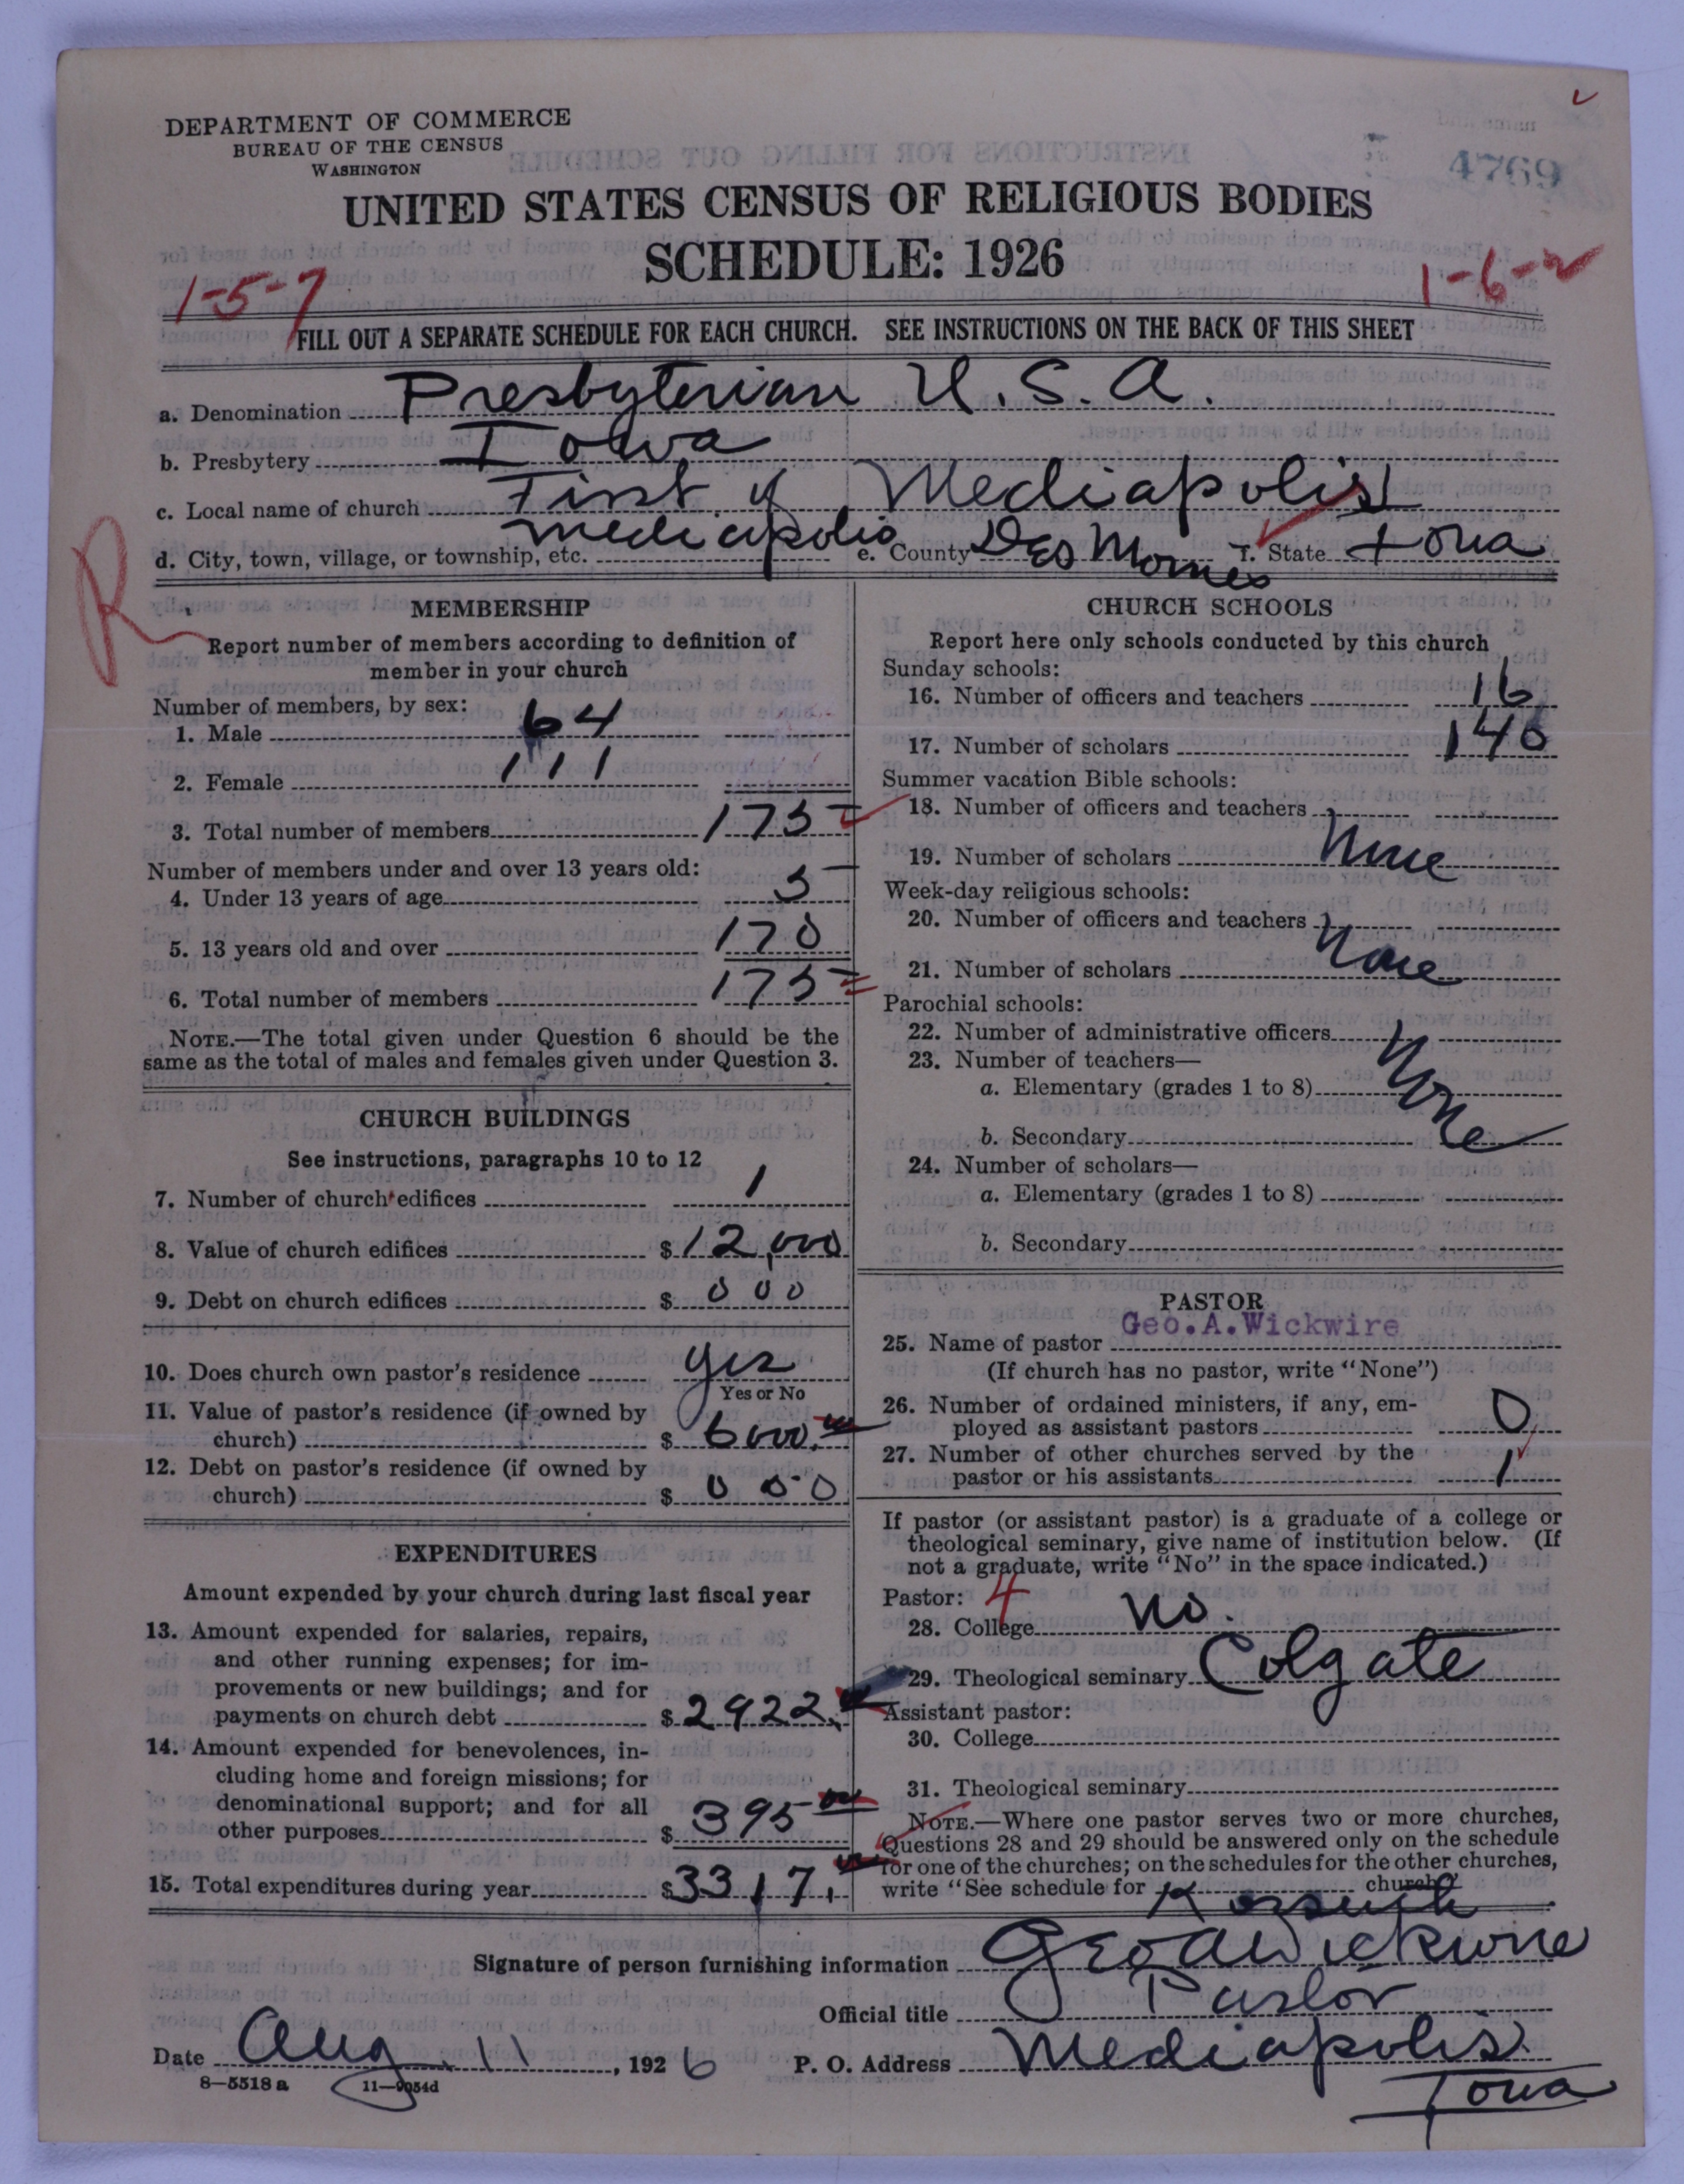 DEPARTMENT OF COMMERCE
BUREAU OF THE CENSUS
WASHINGTON
4769
UNITED STATES CENSUS OF RELIGIOUS BODIES
SCHEDULE: 1926
1-5-7
1-6-2
FILL OUT A SEPARATE SCHEDULE FOR EACH CHURCH. SEE INSTRUCTIONS ON THE BACK OF THIS SHEET
a. Denomination Presbyterian U.S.A.
b. Presbytery Iowa
c. Local name of church First of Mediapolis
d. City, town, village, or township, etc. Mediapolis e. County Des Moines f. State Iowa
R
MEMBERSHIP
Report number of members according to definition of
member in your church
Number of members, by sex:
1. Male 64
2. Female 111
3. Total number of members 175
Number of members under and over 13 years old:
4. Under 13 years of age 5
5. 13 years old and over 170
6. Total number of members 175
NOTE.—The total given under Question 6 should be the
same as the total of males and females given under Question 3.
CHURCH BUILDINGS
See instructions, paragraphs 10 to 12
7. Number of church edifices 1
8. Value of church edifices $12,000
9. Debt on church edifices $ 000
10. Does church own pastor's residence yes
Yes or No
11. Value of pastor's residence (if owned by
church) $ 6000.00
12. Debt on pastor's residence (if owned by
church) $ 000
EXPENDITURES
Amount expended by your church during last fiscal year
13. Amount expended for salaries, repairs,
and other running expenses; for im-
provements or new buildings; and for
payments on church debt $2922.
14. Amount expended for benevolences, in-
cluding home and foreign missions; for
denominational support; and for all
other purposes $ 395 00
15. Total expenditures during year $3317.
CHURCH SCHOOLS
Report here only schools conducted by this church
Sunday schools:
16. Number of officers and teachers 16
17. Number of scholars 146
Summer vacation Bible schools:
18. Number of officers and teachers
19. Number of scholars None
Week-day religious schools:
20. Number of officers and teachers
21. Number of scholars None
Parochial schools:
22. Number of administrative officers
23. Number of teachers—
a. Elementary (grades 1 to 8) None
b. Secondary
24. Number of scholars—
a. Elementary (grades 1 to 8)
b. Secondary
PASTOR
25. Name of pastor Geo.A.Wickwire
(If church has no pastor, write "None")
26. Number of ordained ministers, if any, em-
ployed as assistant pastors 0
27. Number of other churches served by the
pastor or his assistants 1
If pastor (or assistant pastor) is a graduate of a college or
theological seminary, give name of institution below. (If
not a graduate, write "No" in the space indicated.)
Pastor: 4
28. College No.
29. Theological seminary Colgate
Assistant pastor:
30. College
31. Theological seminary
NOTE.—Where one pastor serves two or more churches,
Questions 28 and 29 should be answered only on the schedule
for one of the churches; on the schedules for the other churches,
write "See schedule for Kossuth church"
Signature of person furnishing information Geo A Wickwire
Official title Pastor
Date Aug. 11, 1926 P. O. Address Mediapolis
Iowa
8—5518 a 11—9054d